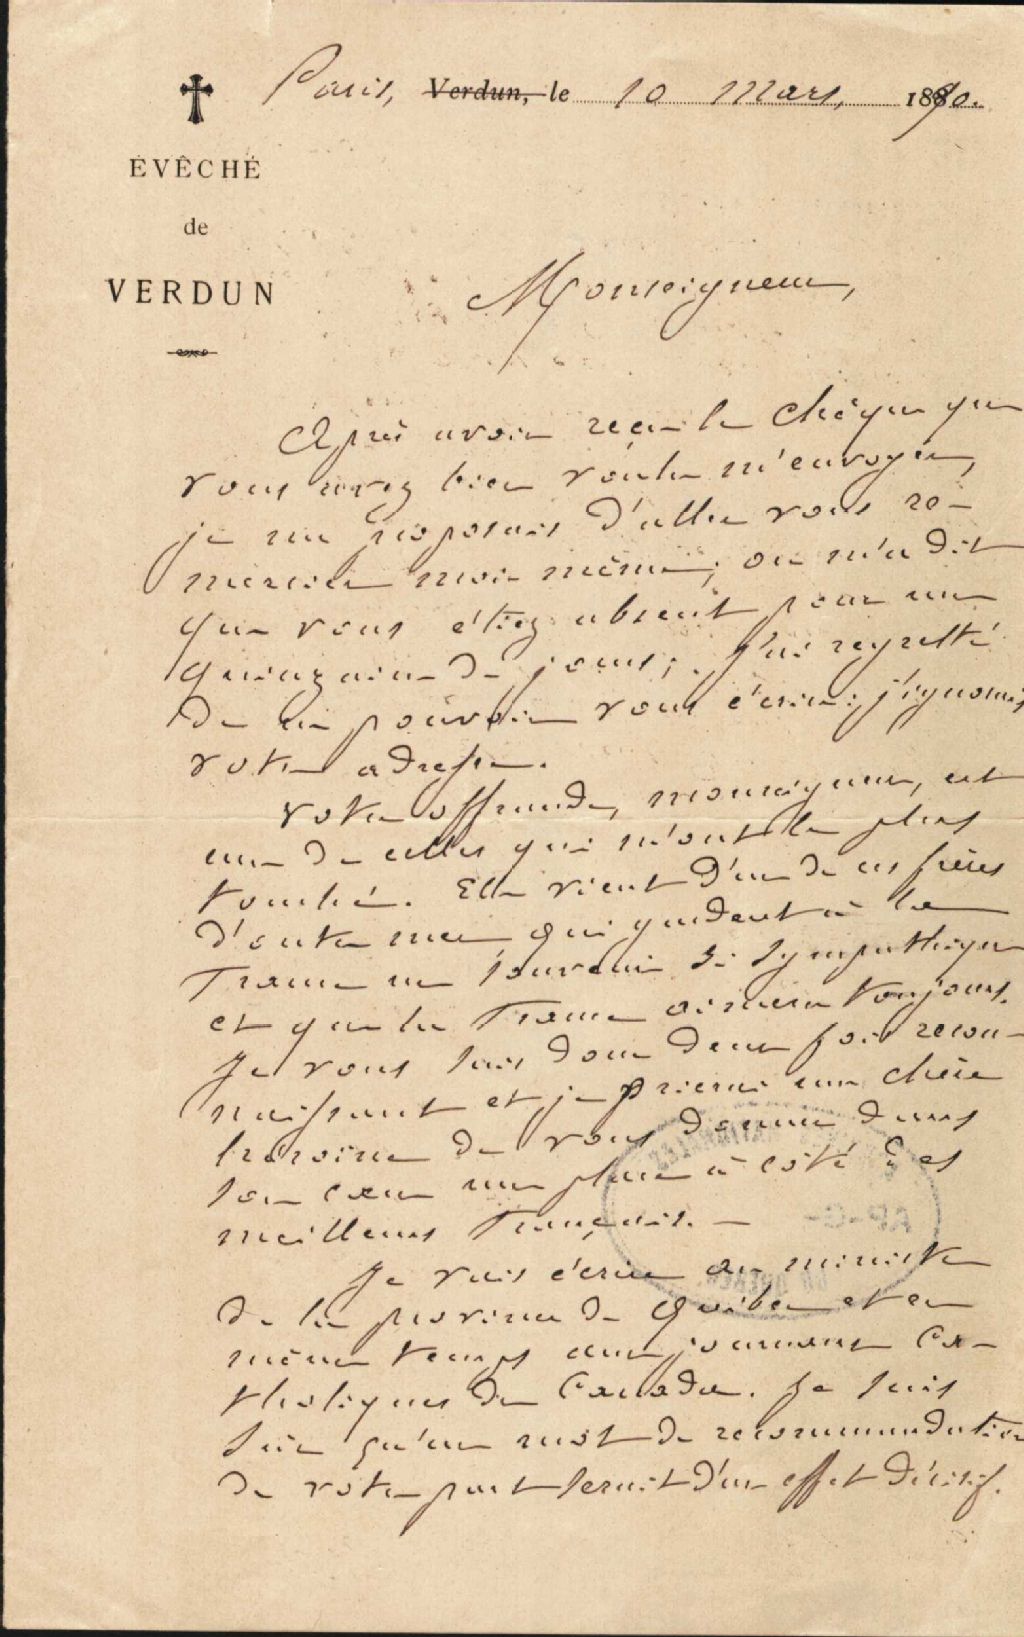 Paris, Verdun, le 10 Mars, 1890.
ÉVÊCHÉ
de
VERDUN
Monseigneur,
Après avoir reçu le chèque que
vous avez bien voulu m'envoyer,
je me proposais d'aller vous re-
mercier moi-même; on m'a dit
que vous étiez absent pour une
quinzaine de jours; j'ai regretté
de ne pouvoir vous écrire: j'ignorais
votre adresse.
Votre offrande, monseigneur, est
une de celles qui m'ont le plus
touché. Elle vient d'un de ces frères
d'outre mer qui gardent à la
France un souvenir si sympathique
et que la France aimera toujours.
Je vous suis donc deux fois recon-
naissant et je prierai ma chère
héroïne de vous donner dans
son cœur une place à côté des
meilleurs Français. —
Je vais écrire au ministre
de la province de Québec et en
même temps aux journaux Ca-
tholiques du Canada. Je suis
sûr qu'un mot de recommandation
de votre part serait d'un effet décisif.
AP-G-